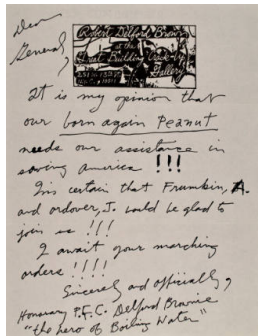 Dear
General,
Robert Delford Brown
at the
Great Building Crack-Up
Gallery
It is my opinion that
our born again Peanut
needs our assistance in
saving america !!!
I'm certain that Frumkin, A.
and ordover, J. would be glad to
join us !!!
I await your marching
orders !!!!
Sincerely and officially,
Honorary P.F.C. Delford Brownie
"the hero of Boiling Water"